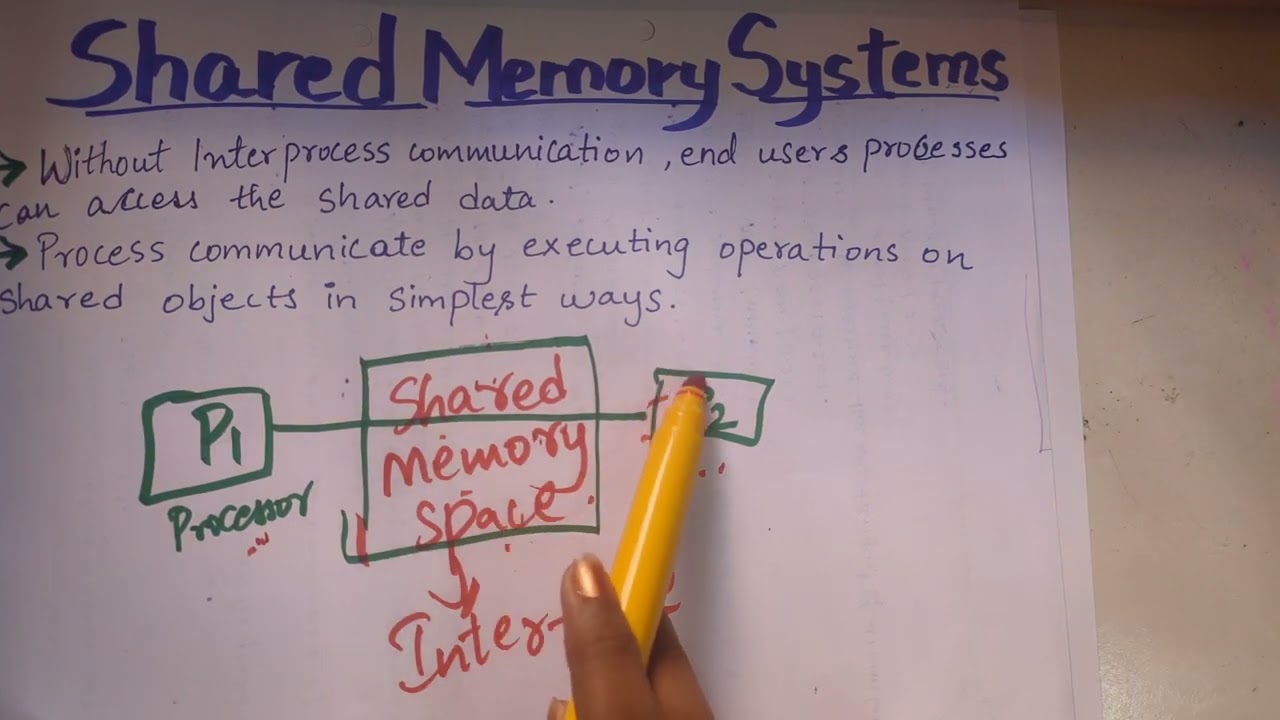 Shared Memory Systems
→ Without Interprocess communication, end users processes
can access the shared data.
→ Process communicate by executing operations on
shared objects in simplest ways.
P1
Processor
Shared
Memory
Space
2
Inter-